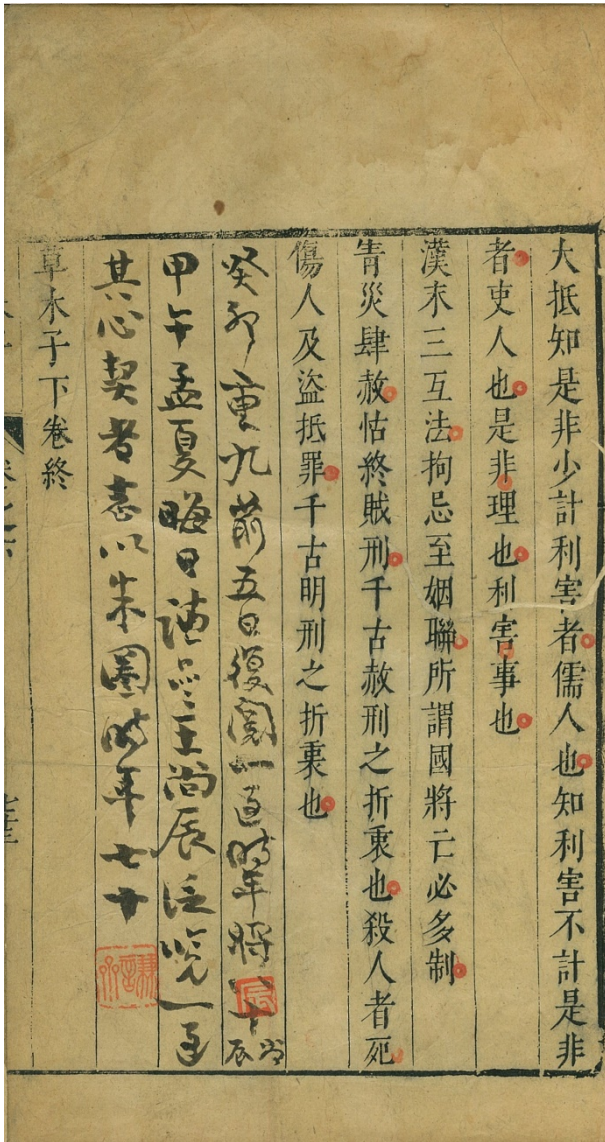 大抵知是非少計利害者儒人也知利害不計是非
者吏人也是非理也利害事也
漢末三互法拘忌至姻聯所謂國將亡必多制
眚災肆赦怙終賊刑千古赦刑之折衷也殺人者死
傷人及盜抵罪千古明刑之折衷也
癸卯重九前五日復閱一過時年將八十尚辰
甲午孟夏晦日謙齋王尚辰泛覽一過
其心契者志以朱圈時年七十
草木子下卷終